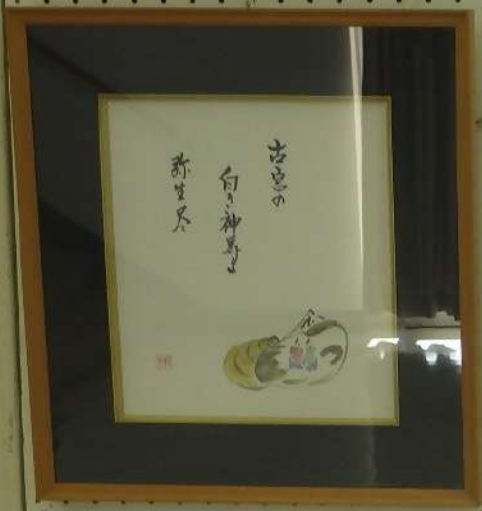 古宮の
白き神馬よ
弥生尽